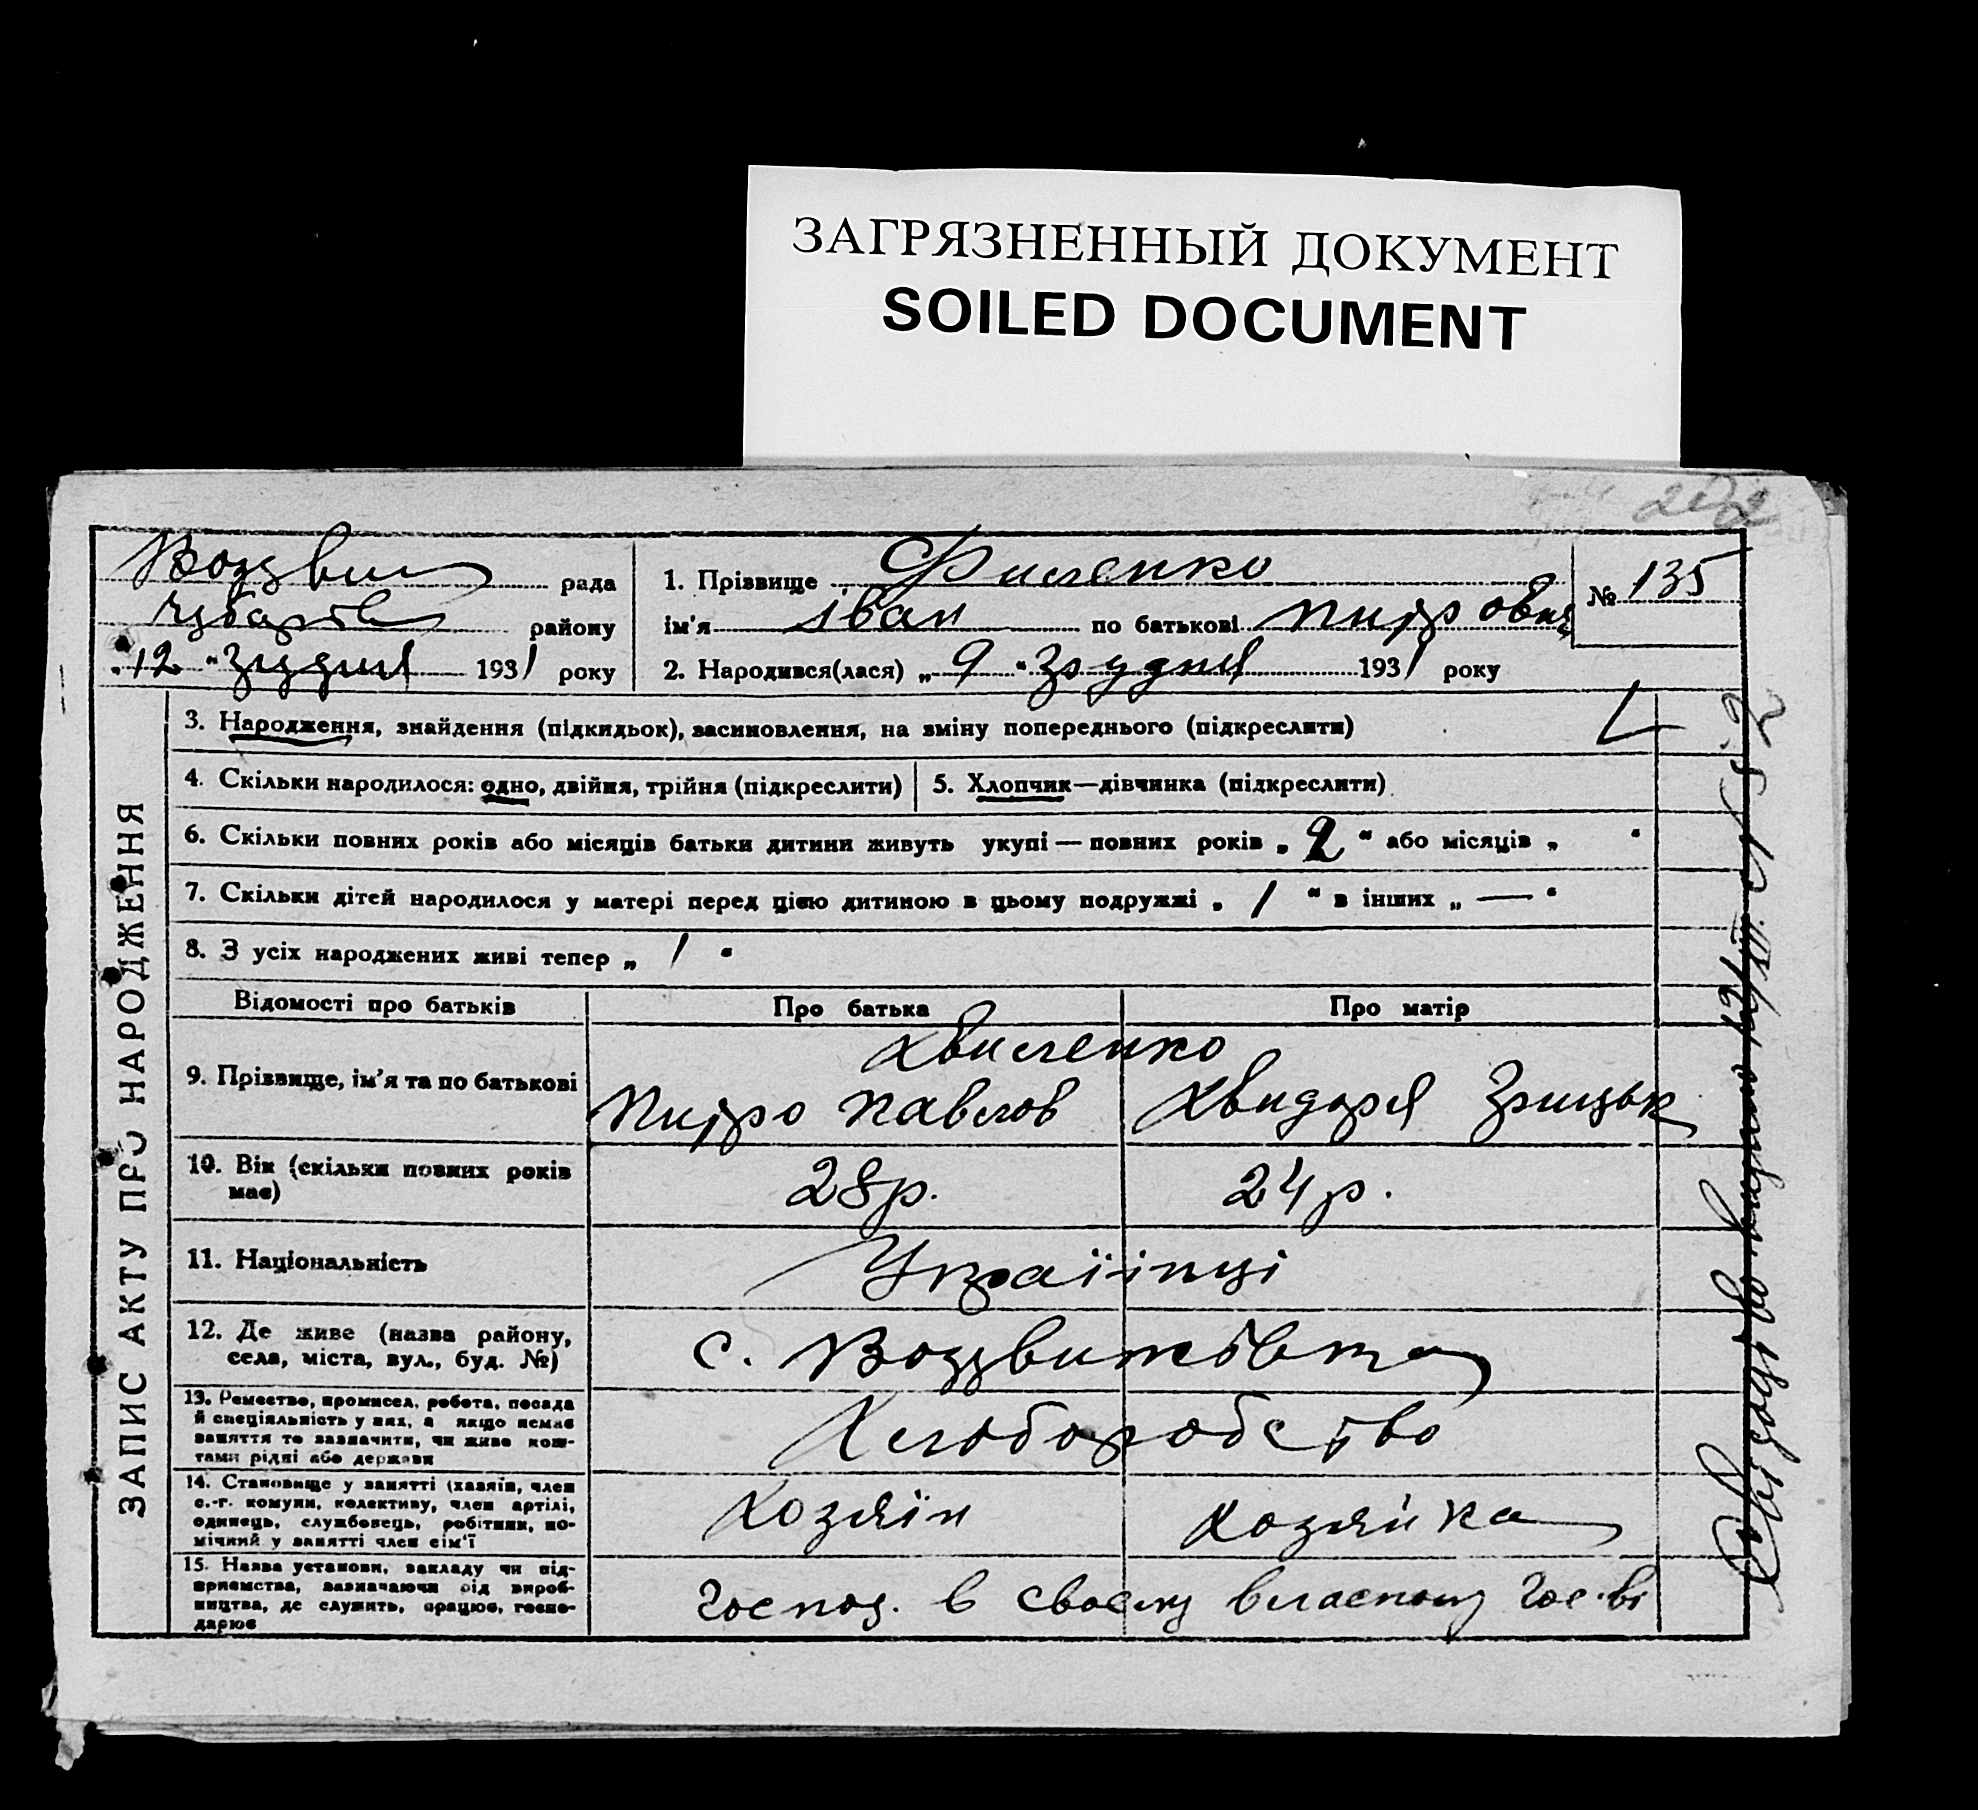 ЗАГРЯЗНЕННЫЙ ДОКУМЕНТ
SOILED DOCUMENT
202
Воздвиж рада
Чубарів району
„12“ Згудня 1931 року
1. Прізвище Фисленко
ім'я Іван по батькові Пидрович
№ 135
2. Народився(лася) „9“ Згудня 1931 року
ЗАПИС АКТУ ПРО НАРОДЖЕННЯ
3. Народження, знайдення (підкидьок), засиновлення, на зміну попереднього (підкреслити)
4. Скільки народилося: одно, двійня, трійня (підкреслити)
5. Хлопчик—дівчинка (підкреслити)
6. Скільки повних років або місяців батьки дитини живуть укупі — повних років „2“ або місяців „ “
7. Скільки дітей народилося у матері перед цією дитиною в цьому подружжі „1“ в інших „—“
8. З усіх народжених живі тепер „1“
Відомості про батьків Про батька Про матір
9. Прізвище, ім'я та по батькові
Хвисленко
Пидро Павлов Хвидоря Грицьк
10. Вік (скільки повних років має) 28р. 24р.
11. Національність Українці
12. Де живе (назва району, села, міста, вул., буд. №) с. Воздвижівка
13. Ремество, промисел, робота, посада
й спеціяльність у них, а якщо немає
заняття то зазначити, чи живе кош-
тами рідні або держави
Хлоборобство
14. Становище у занятті (хазяїн, член
с.-г. комуни, колективу, член артілі,
одинець, службовець, робітник, по-
мічний у занятті член сім'ї
Хозяїн Хозяйка
15. Назва установи, закладу чи під-
приємства, зазначаючи рід вироб-
ництва, де служить, працює, госпо-
дарює
Господ. в своєму власному гос-ві